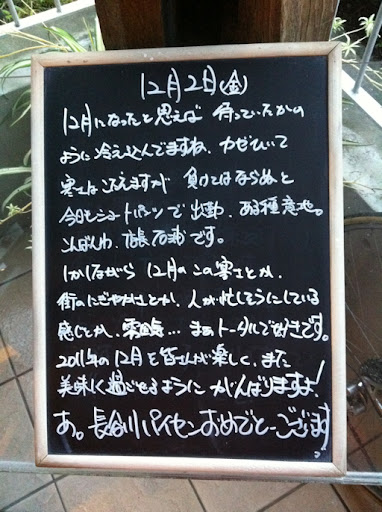 12月2日(金)
12月になったと思えば 待っていたかの
ように冷え込んでますね、カゼひいて
寒さはこたえますが 負けてはならぬと
今日もショートパンツで出勤、ある種意地。
こんばんわ、店長です。
しかしながら 12月の この寒さとか、
街のにぎやかさとか、人が忙しそうにしている
感じとか、… まぁトータルで好きです。
2011年の12月を皆さんが楽しく、また
美味しく過ごせるように がんばりますよ!
あ。長谷川パイセンおめでとーございます